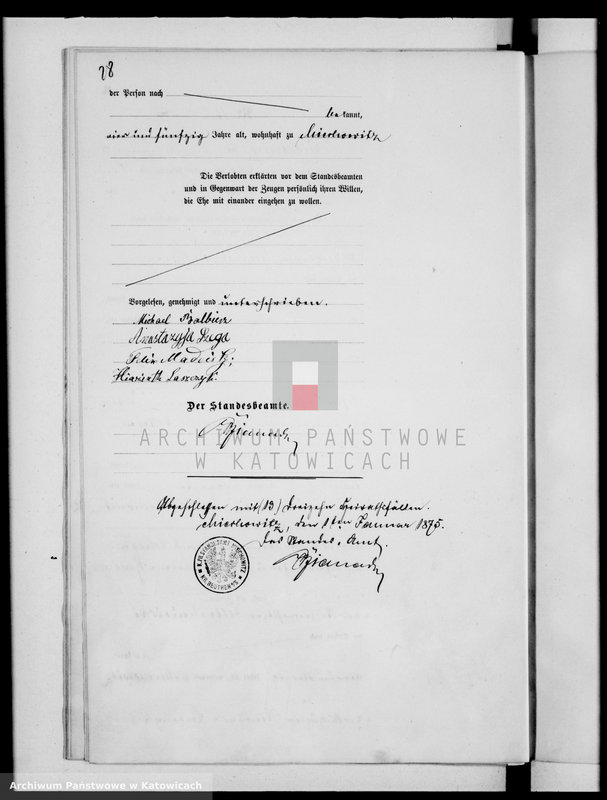 28
der Person nach
bekannt,
vier und fünfzig Jahre alt, wohnhaft zu Miechowitz
Die Verlobten erklärten vor dem Standesbeamten
und in Gegenwart der Zeugen persönlich ihren Willen,
die Ehe mit einander eingehen zu wollen.
Vorgelesen, genehmigt und unterschrieben.
Michael
Anastazyja
Felix
Der Standesbeamte.
ARCHIWUM PAŃSTWOWE
W KATOWICACH
Abgeschlossen mit (13) dreizehn Heirathsfällen.
Miechowitz, den 1ten Januar 1875.
Das Standes-Amt.
Archiwum Państwowe w Katowicach